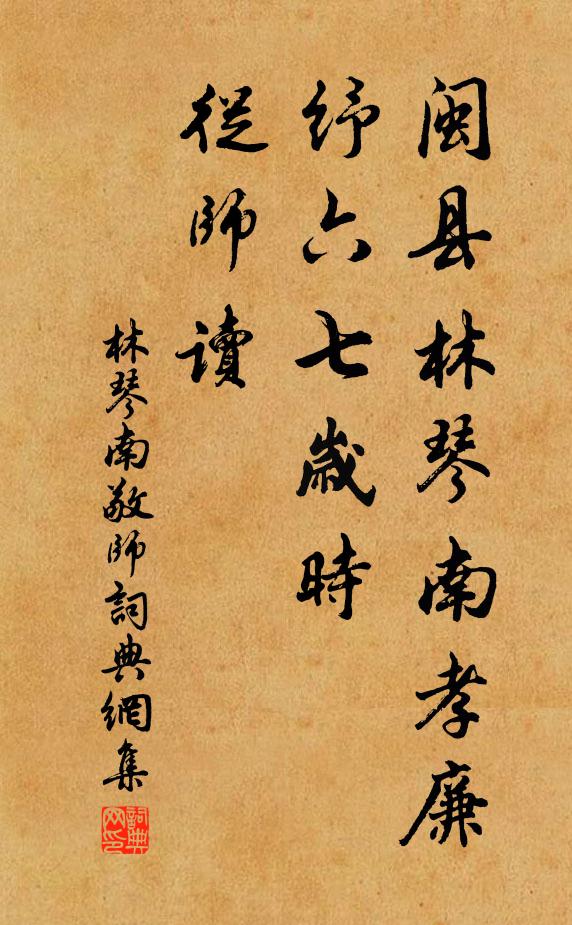 闽县林琴南孝廉
纾六七歲時
從師讀
林琴南敬師詞典網集
詞典网印